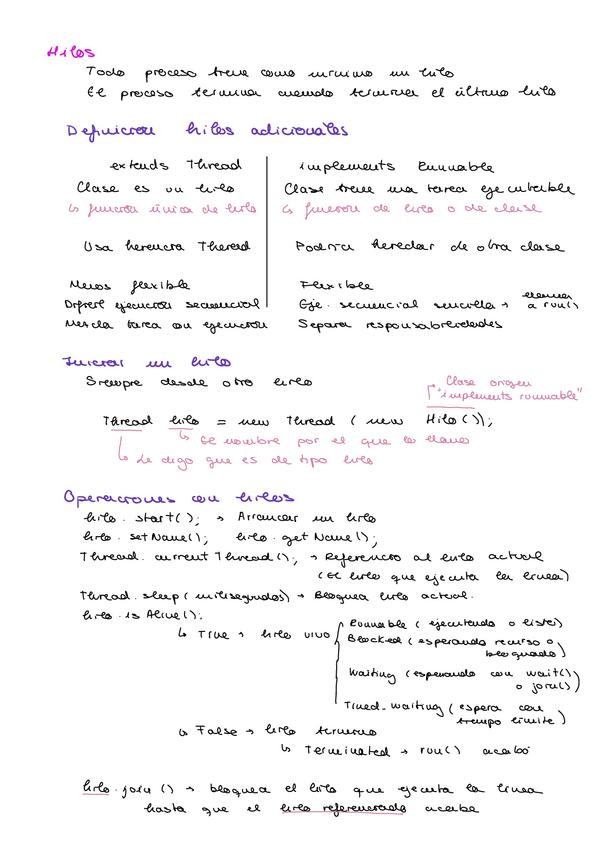 Hilos
Todo proceso tiene como mínimo un hilo
El proceso termina cuando termina el último hilo
Definicion hilos adicionales
extends Thread
Clase es un hilo
↳ función única de hilo
Usa herencia Theread
Menos flexible
Difrest ejecución secuencial
Mezcla tarea con ejecución
implements Runnable
Clase tiene una tarea ejecutable
↳ función de hilo o de clase
Podria heredar de otra clase
Flexible
Eje. secuencial sencilla → a run()
Separa responsabilidades
Iniciar un hilo
Siempre desde otro hilo
Clase origen
"implements runnable"
Thread hilo = new Thread ( new Hilo());
↳ El nombre por el que lo llamo
↳ Le digo que es de tipo hilo
Operaciones con hilos
hilo.start(); → Arrancar un hilo
hilo.setName(); hilo.getName();
Thread.currentThread(); → Referencia al hilo actual
(El hilo que ejecuta la linea)
Thread.sleep(milisegundos) → Bloquea hilo actual.
hilo.isAlive();
↳ True → hilo vivo
Runnable (ejecutando o listo)
Blocked (esperando recurso o
bloqueado)
Waiting (esperando con wait()
o join())
Timed_waiting (espera con
tiempo limite)
↳ False → hilo termino
↳ Terminated → run() acabó
hilo.join() → bloquea el hilo que ejecuta la linea
hasta que el hilo referenciado acabe